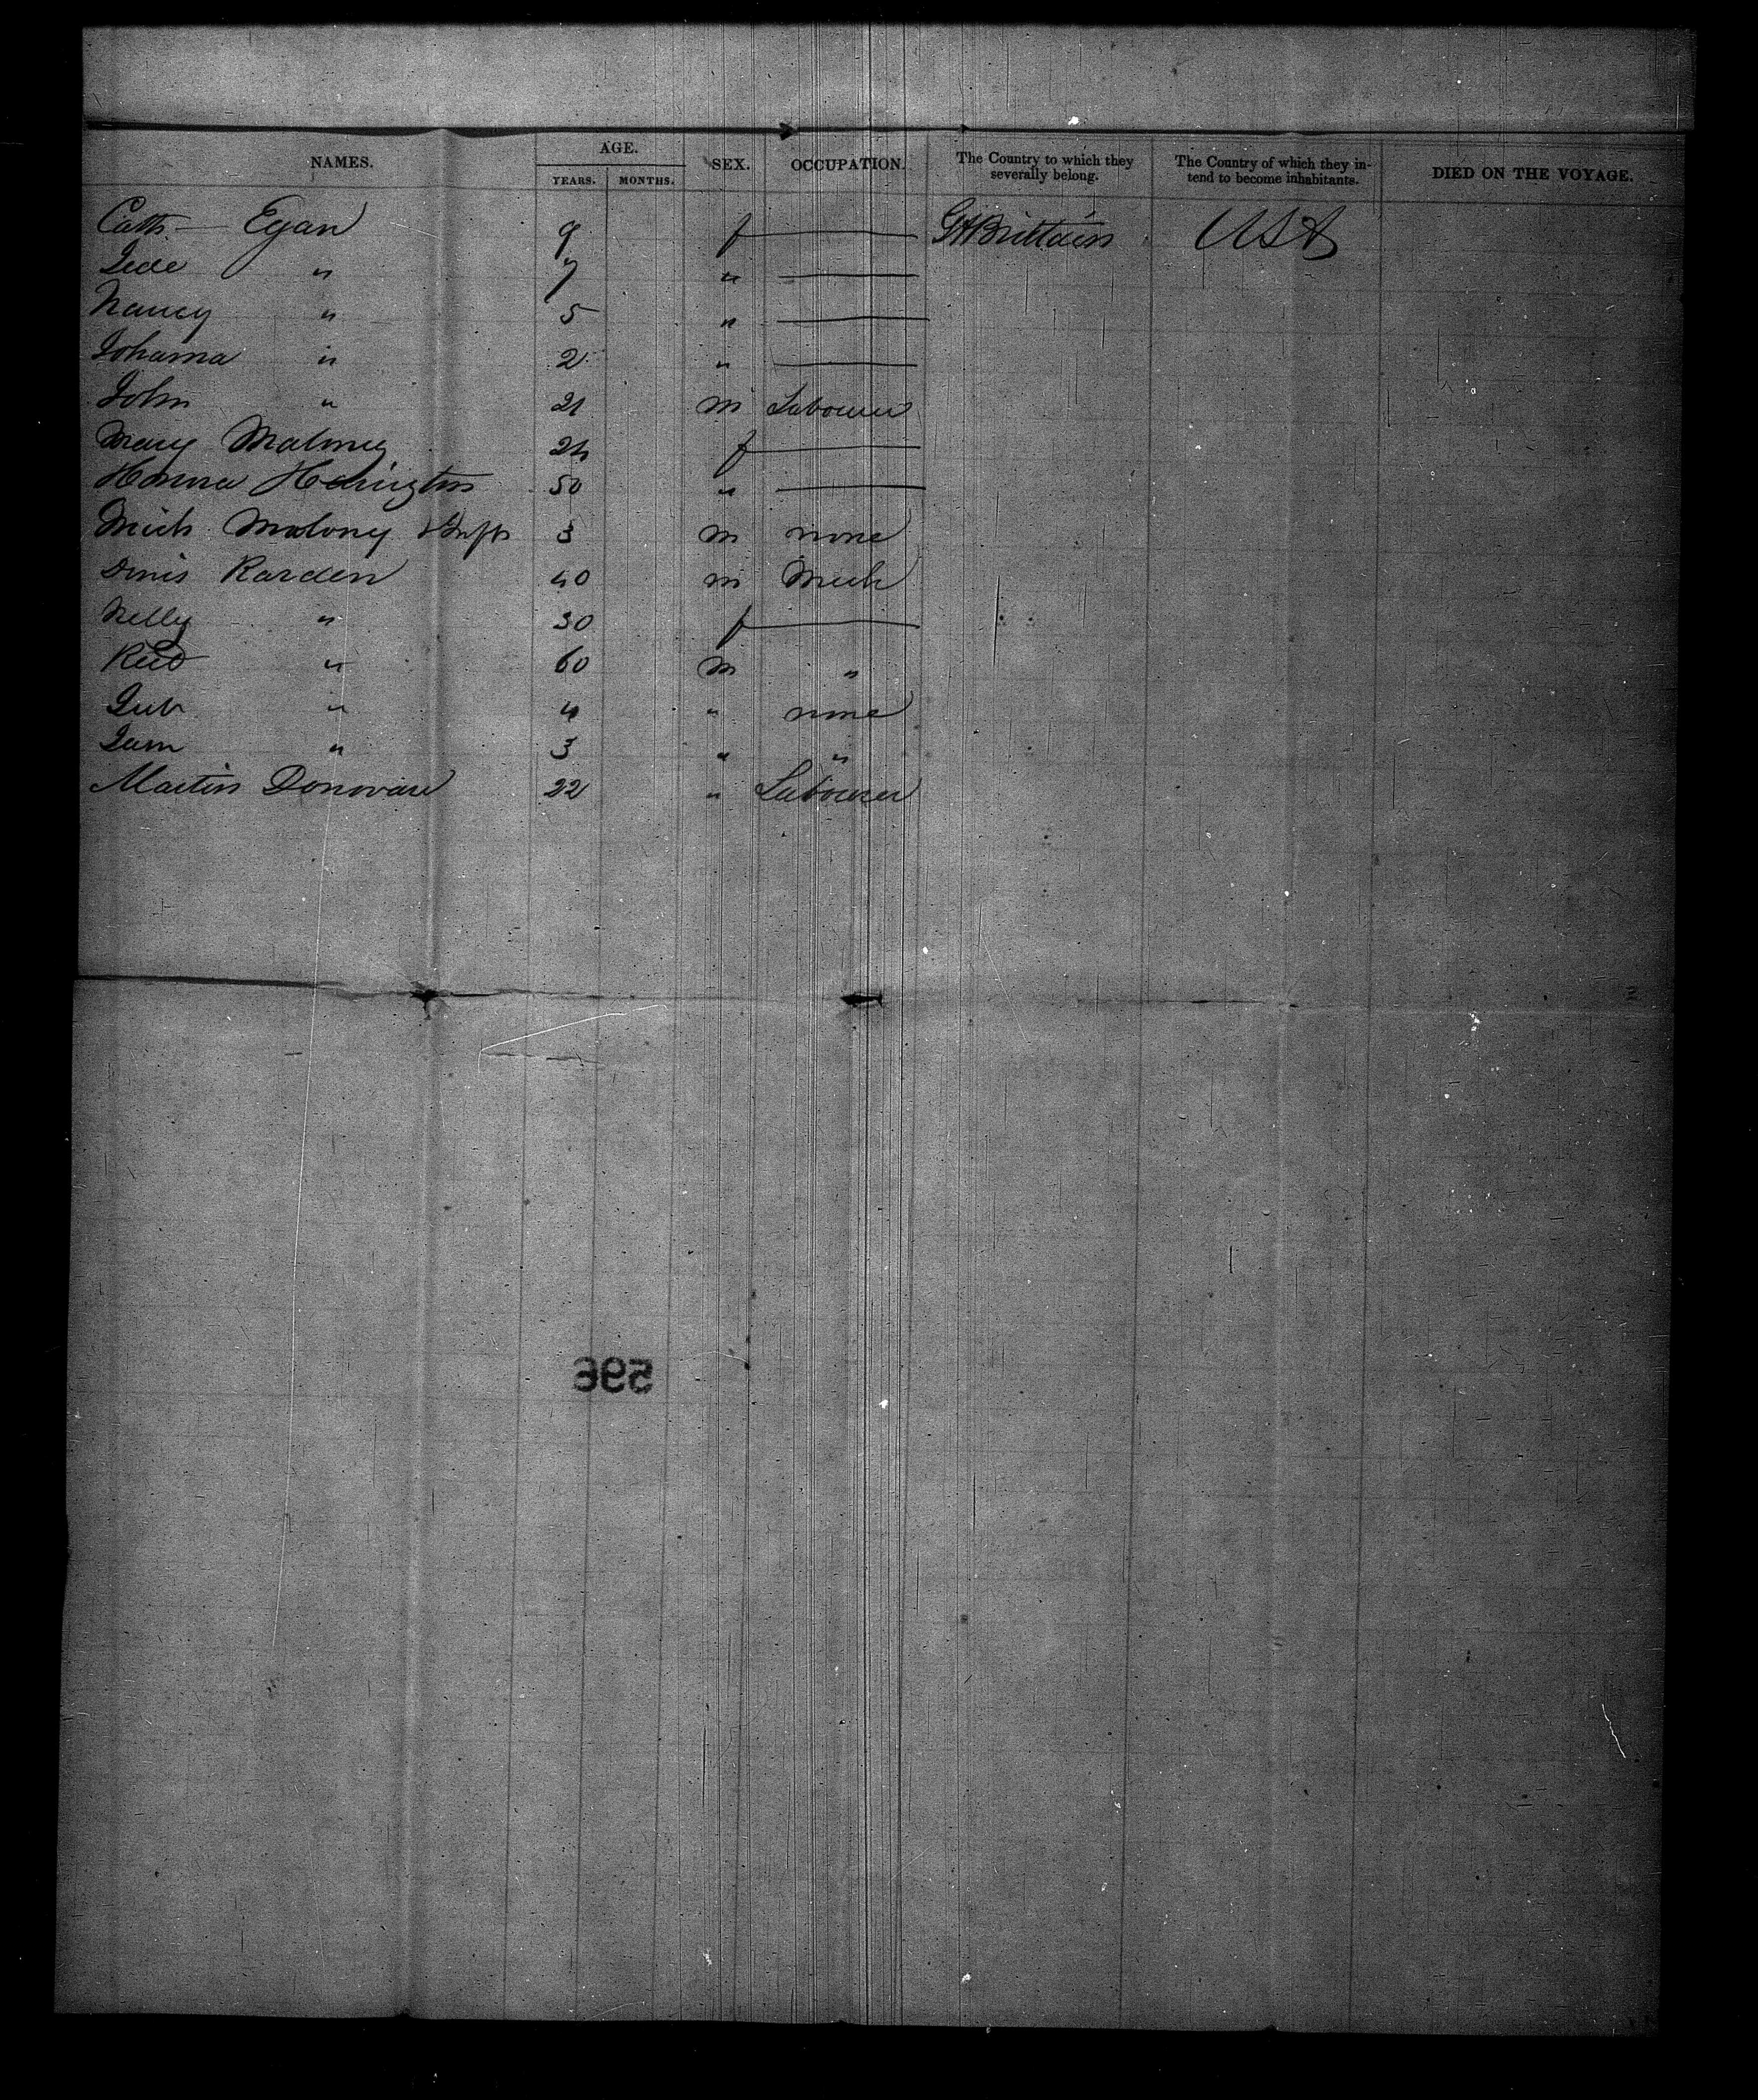 NAMES. AGE. YEARS. MONTHS. SEX. OCCUPATION. The Country to which they severally belong. The Country of which they intend to become inhabitants. DIED ON THE VOYAGE.
Cath — Egan 9 f — Gt Brittain USA
" 7 " —
Nancy " 5 " —
Johanna " 2 " —
John " 21 m Labourer
Mary Maloney 24 f —
50 " —
Mich Malony & Inft 3 m none
Dinis Rarden 40 m Mech
Nelly " 30 f —
" 60 m "
" 4 " none
Jam " 3 " "
Martin Donovan 22 " Labourer
596